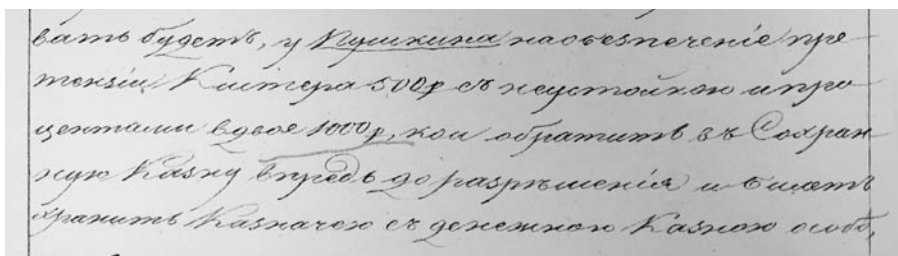 вать будетъ, у Пушкина на обезпеченіе пре-
тензіи Кистера 500р съ неустойкою и про
центами вдвое 1000р, кои обратить въ Сохран
ную Казну впредь до разрѣшенія и билетъ
хранить Казначею съ денежною Казною особо,